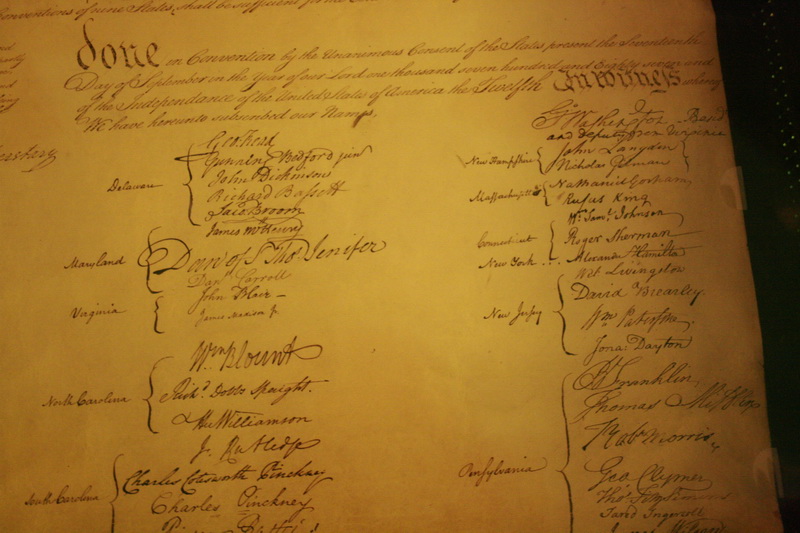 Conventions of nine States, shall be sufficient for the
done in Convention by the Unanimous Consent of the States present the Seventeenth
Day of September in the Year of our Lord one thousand seven hundred and Eighty seven and
of the Independance of the United States of America the Twelfth In Witness whereof
We have hereunto subscribed our Names,
Delaware
Geo: Read
Gunning Bedford jun
John Dickinson
Richard Bassett
Jaco: Broom
Maryland
James McHenry
Dan of St Thos Jenifer
Danl Carroll
Virginia
John Blair —
James Madison Jr.
North Carolina
Wm Blount
Richd Dobbs Spaight.
Hu Williamson
South Carolina
J. Rutledge
Charles Cotesworth Pinckney
Charles Pinckney
Go Washington
and deputy from Virginia
New Hampshire
John Langdon
Nicholas Gilman
Massachusetts
Nathaniel Gorham
Rufus King
Connecticut
Wm Saml Johnson
Roger Sherman
New York . . .
Alexander Hamilton
New Jersey
Wil: Livingston
David Brearley.
Wm Paterson.
Jona: Dayton
Pensylvania
B Franklin
Thomas Mifflin
Robt Morris
Geo. Clymer
Thos FitzSimons
Jared Ingersoll
James Wilson